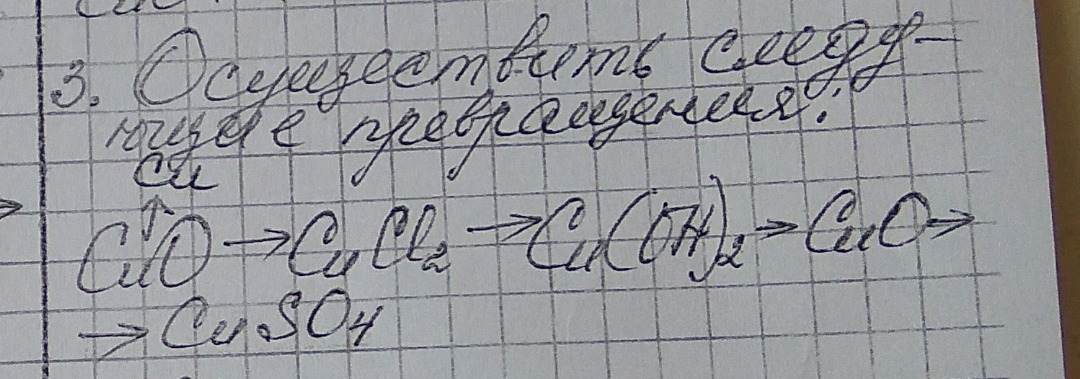 3. Осуществить следу-
ющие превращения:
Cu
↑
CuO → CuCl₂ → Cu(OH)₂ → CuO →
→ CuSO₄